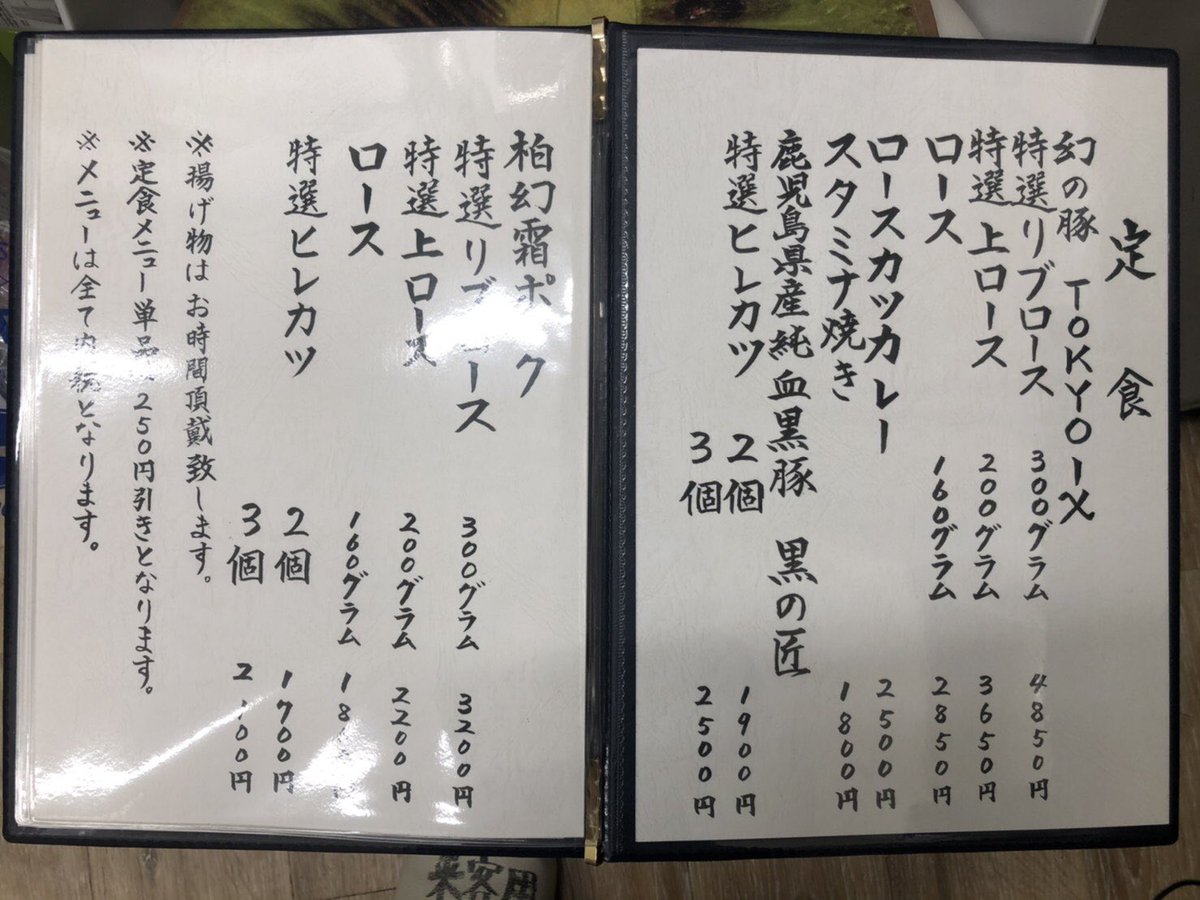 定食
幻の豚 TOKYO-X
特選リブロース 300グラム 4850円
特選上ロース 200グラム 3650円
ロース 160グラム 2850円
ロースカツカレー 2500円
スタミナ焼き 1800円
鹿児島県産純血黒豚 黒の匠
特選ヒレカツ 2個 1900円
3個 2500円
柏幻霜ポーク
特選リブロース 300グラム 3200円
特選上ロース 200グラム 2200円
ロース 160グラム
特選ヒレカツ 2個 1700円
3個 2100円
※揚げ物はお時間頂戴致します。
※定食メニュー単品は250円引きとなります。
※メニューは全て内税となります。
来客用